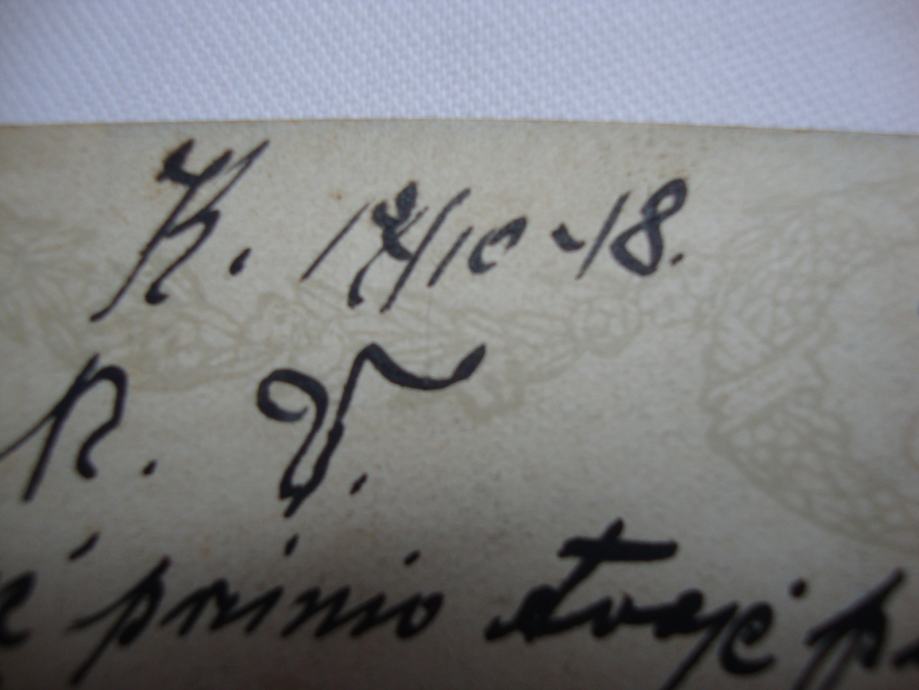 K. 18/10-18.
R. V.
primio tvoje